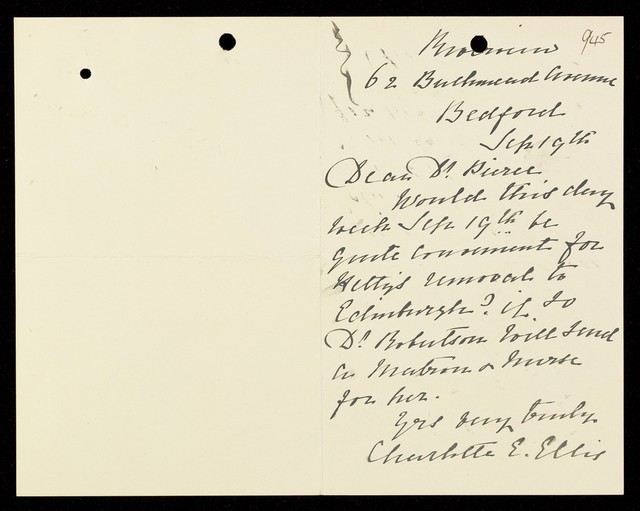 945
62 Bushmead Avenue
Bedford
Sep 19th
Dear Dr. Pierce
Would this day
week Sep 19th be
quite convenient for
Hetty's removal to
Edinburgh? if so
Dr. Robertson will send
a Matron & Nurse
for her.
Yrs very truly
Charlotte E. Ellis